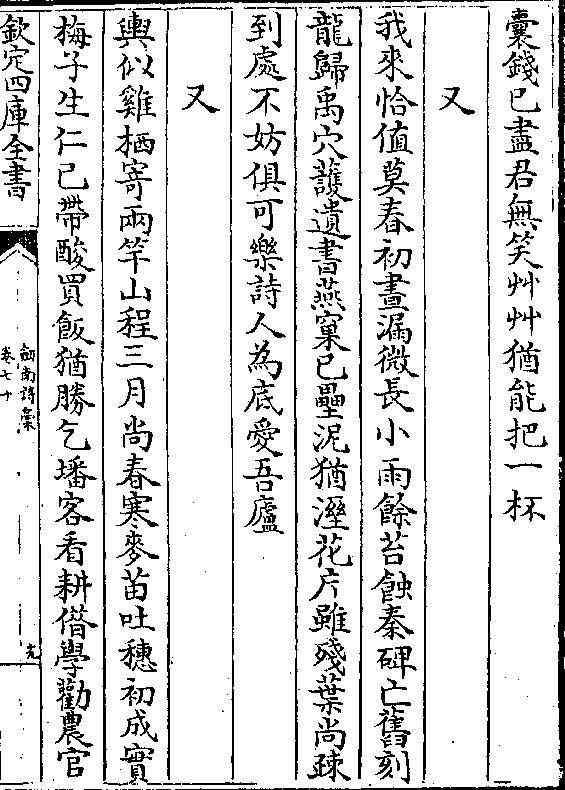 囊錢已盡君無笑艸艸猶能把一杯
又
我來恰值莫春初晝漏微長小雨餘苔蝕秦碑亡舊刻
龍歸禹穴護遺書燕窠已壘泥猶溼花片雖殘葉尚疎
到處不妨俱可樂詩人為底愛吾廬
又
輿似雞栖寄兩竿山程三月尚春寒麥苗吐穗初成實
梅子生仁已帶酸買飯猶勝乞墦客看耕偕學勸農官
欽定四庫全書
劒南詩稾
卷七十